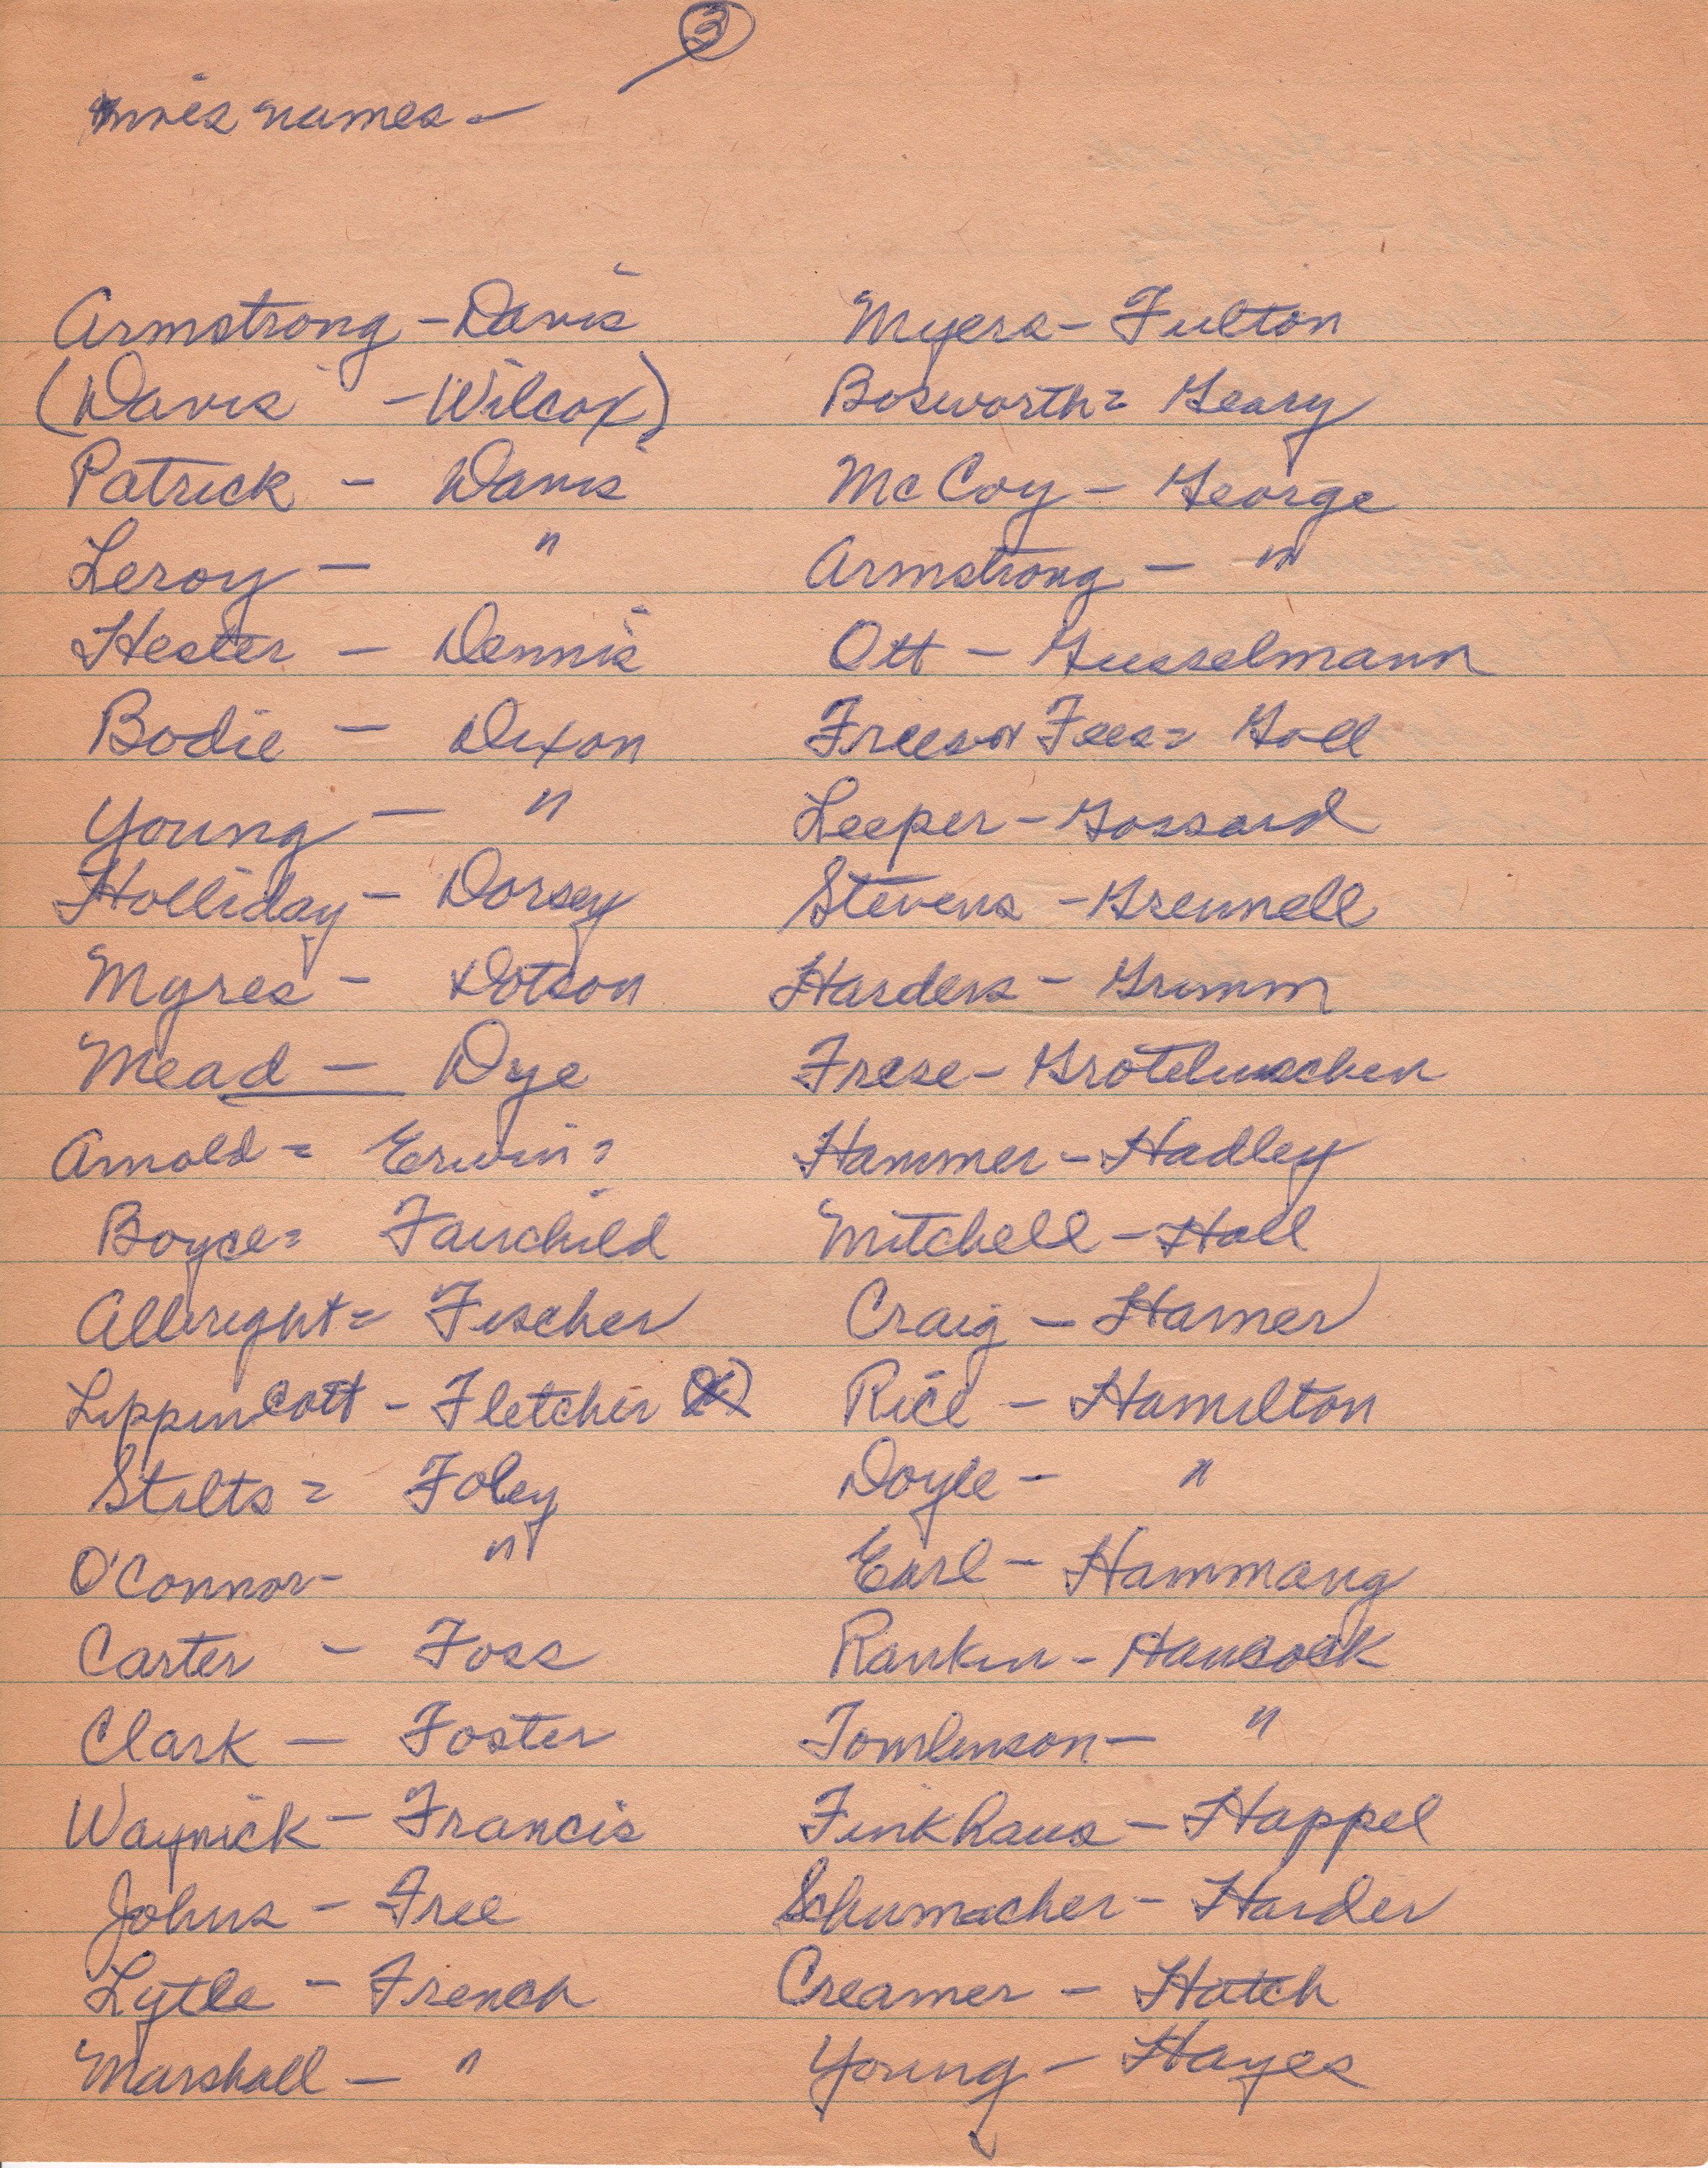 3
names -
Armstrong - Davis
(Davis - Wilcox)
Patrick - Davis
Leroy - "
Hester - Dennis
Bodie - Dixon
Young - "
Holliday - Dorsey
Myres - Dotson
Mead - Dye
Arnold = Erwin =
Boyce = Fairchild
Albright = Fischer
Lippincott - Fletcher
Stilts = Foley
O'Connor - "
Carter - Foss
Clark - Foster
Waynick - Francis
Johns - Free
Lytle - French
Marshall - "
Myers - Fulton
Bosworth = Geary
McCoy - George
Armstrong - "
Ott - Gusselmann
Frees or Fees = Goll
Leeper - Gossard
Stevens - Grennell
Harders - Grimm
Frese - Grotelueschen
Hammer - Hadley
Mitchell - Hall
Craig - Hamer
Rice - Hamilton
Doyle - "
Earl - Hammang
Rankin - Hancock
Tomlinson - "
Finkhaus - Happel
Schumacher - Harder
Creamer - Hatch
Young - Hayes